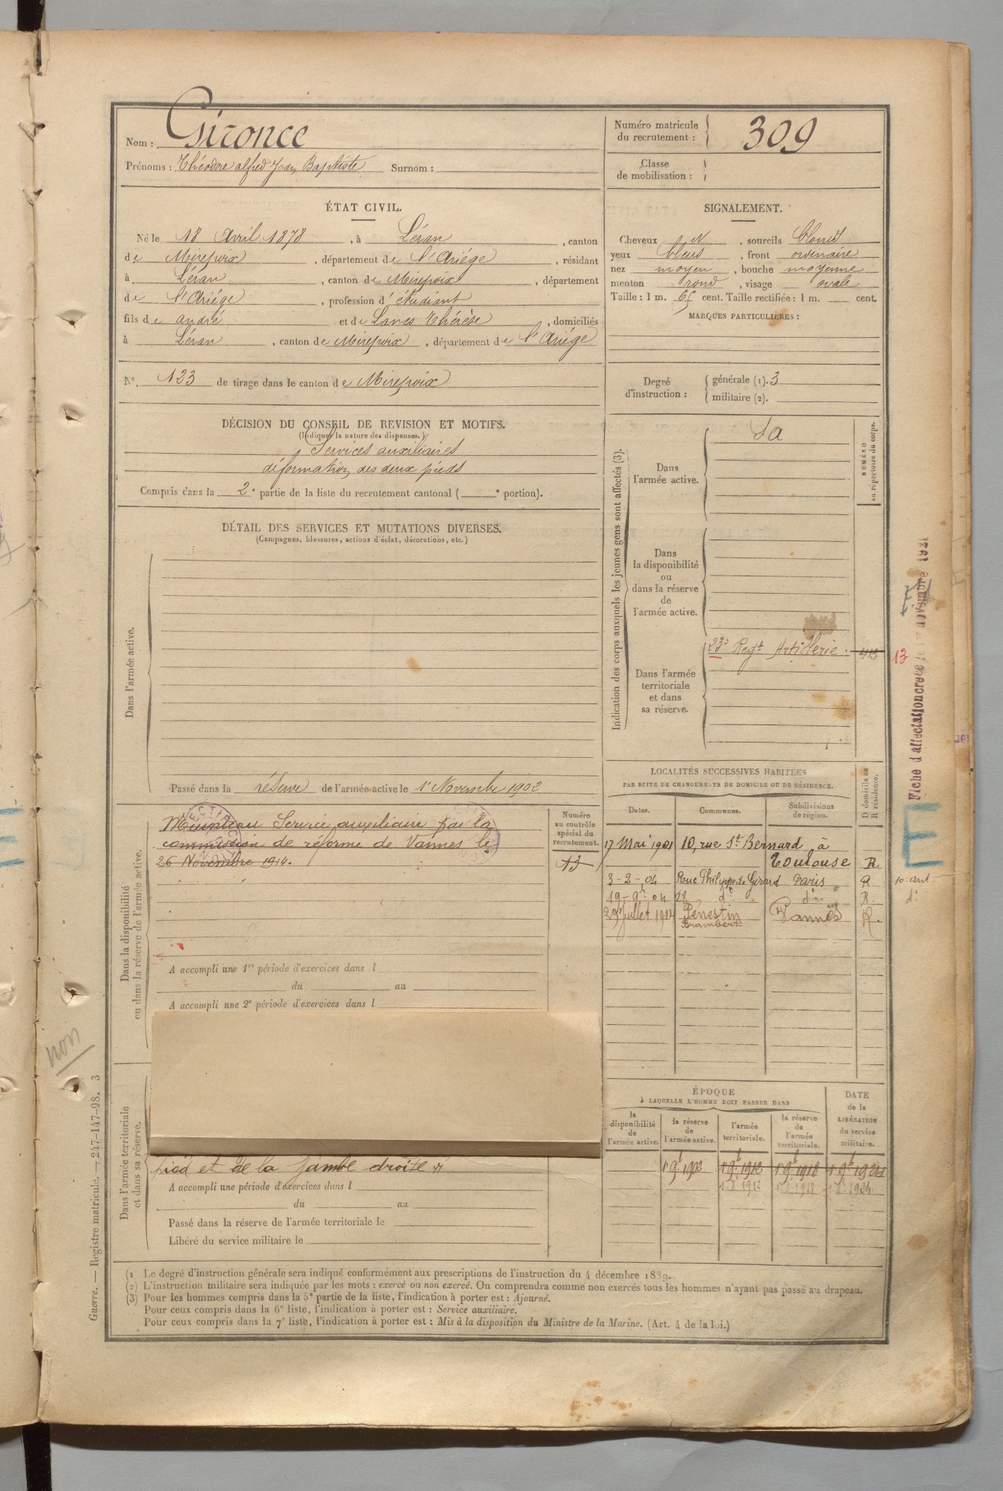 Nom : Gironce
Prénoms : Théodore alfred Jean Baptiste Surnom :
Numéro matricule
du recrutement : 309
Classe
de mobilisation :
ÉTAT CIVIL.
Né le 18 Avril 1878, à Léran, canton
de Mirepoix, département de l'Ariége, résidant
à Léran, canton de Mirepoix, département
de l'Ariége, profession d'étudiant
fils de andré et de Thérèse, domiciliés
à Léran, canton de Mirepoix, département de l'Ariége
N°. 123 de tirage dans le canton de Mirepoix
SIGNALEMENT.
Cheveux, sourcils blonds
yeux bleus, front ordinaire
nez moyen, bouche moyenne
menton rond, visage ovale
Taille : 1 m. 65 cent. Taille rectifiée : 1 m. cent.
MARQUES PARTICULIÈRES :
Degré
d'instruction :
générale (1). 3
militaire (2).
DÉCISION DU CONSEIL DE REVISION ET MOTIFS.
(Indiquer la nature des dispenses.)
Services auxiliaires
déformation des deux pieds
Compris dans la 2e partie de la liste du recrutement cantonal ( e portion).
DÉTAIL DES SERVICES ET MUTATIONS DIVERSES.
(Campagnes, blessures, actions d'éclat, décorations, etc.)
Dans l'armée active.
Passé dans la réserve de l'armée active le 1er Novembre 1902
Indication des corps auxquels les jeunes gens sont affectés (3).
Dans
l'armée active.
Sa
NUMÉRO
au répertoire du corps.
Dans
la disponibilité
ou
dans la réserve
de
l'armée active.
Dans l'armée
territoriale
et dans
sa réserve.
23e Regt Artillerie
13
Fiche d'affectation créée novembre 1921
Dans la disponibilité
ou dans la réserve de l'armée active.
Maintenu Service auxiliaire par la
commission de réforme de Vannes le
26 Novembre 1914.
Numéro
au contrôle
spécial du
recrutement.
13
A accompli une 1re période d'exercices dans l
du au
A accompli une 2e période d'exercices dans l
LOCALITÉS SUCCESSIVES HABITÉES
PAR SUITE DE CHANGEMENTS DE DOMICILE OU DE RÉSIDENCE.
Dates. Communes. Subdivisions
de région.
D domicile ou
R résidence.
17 Mai 1901 10, rue St Bernard à
Toulouse R
3-2-04 Rue Philippe de Girard Paris R
19-9-04 28, do do R.
29 Juillet 1912 Pénestin Vannes R.
E
non
Dans l'armée territoriale
et dans sa réserve.
pied et de la jambe droite
A accompli une période d'exercices dans l
du au
Passé dans la réserve de l'armée territoriale le
Libéré du service militaire le
ÉPOQUE
À LAQUELLE L'HOMME DOIT PASSER DANS
la
disponibilité
de
l'armée active.
la réserve
de
l'armée active.
l'armée
territoriale.
la réserve
de
l'armée
territoriale.
DATE
de la
LIBÉRATION
du service
militaire.
Guerre. — Registre matricule. — 247-147-98. 3
(1 Le degré d'instruction générale sera indiqué conformément aux prescriptions de l'instruction du 4 décembre 1889.
(2) L'instruction militaire sera indiquée par les mots : exercé ou non exercé. On comprendra comme non exercés tous les hommes n'ayant pas passé au drapeau.
(3) Pour les hommes compris dans la 5e partie de la liste, l'indication à porter est : Ajourné.
Pour ceux compris dans la 6e liste, l'indication à porter est : Service auxiliaire.
Pour ceux compris dans la 7e liste, l'indication à porter est : Mis à la disposition du Ministre de la Marine. (Art. 4 de la loi.)